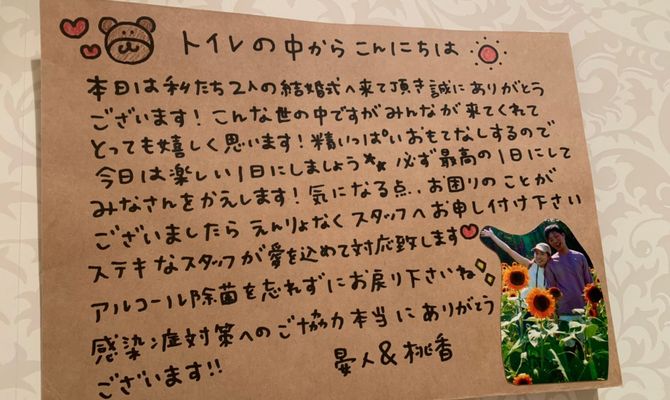 トイレの中からこんにちは
本日は私たち2人の結婚式へ来て頂き誠にありがとう
ございます！こんな世の中ですがみんなが来てくれて
とっても嬉しく思います！精いっぱいおもてなしするので
今日は楽しい1日にしましょう 必ず最高の1日にして
みなさんをかえします！気になる点..お困りのことが
ございましたらえんりょなくスタッフへお申し付け下さい
ステキなスタッフが愛を込めて対応致します
アルコール除菌を忘れずにお戻り下さいね
感染症対策へのご協力本当にありがとう
ございます!!
晏人&桃香